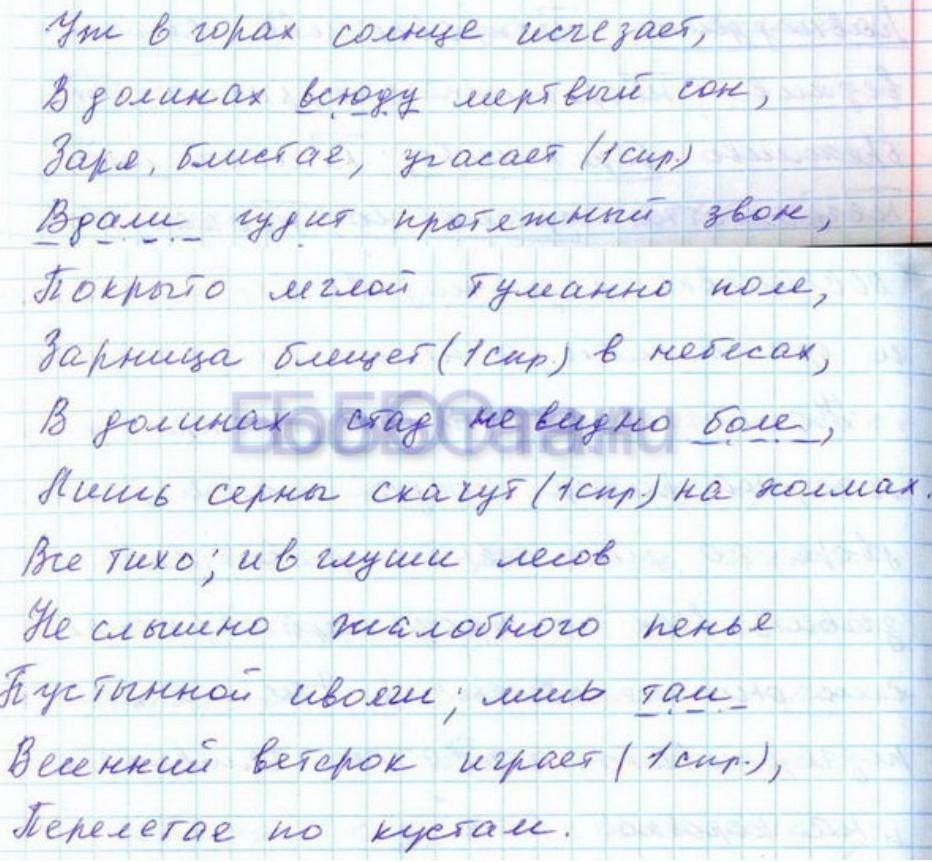 Уж в горах солнце исчезает,
В долинах всюду мертвый сон,
Заря, блистая, угасает (1 спр.)
Вдали гудит протяжный звон,
Покрыто мглой туманно поле,
Зарница блещет (1 спр.) в небесах,
В долинах стад не видно боле,
Лишь серны скачут (1 спр.) на холмах.
Все тихо; и в глуши лесов
Не слышно жалобного пенья
Пустынной иволги; лишь там
Весенний ветерок играет (1 спр.),
Перелетая по кустам.